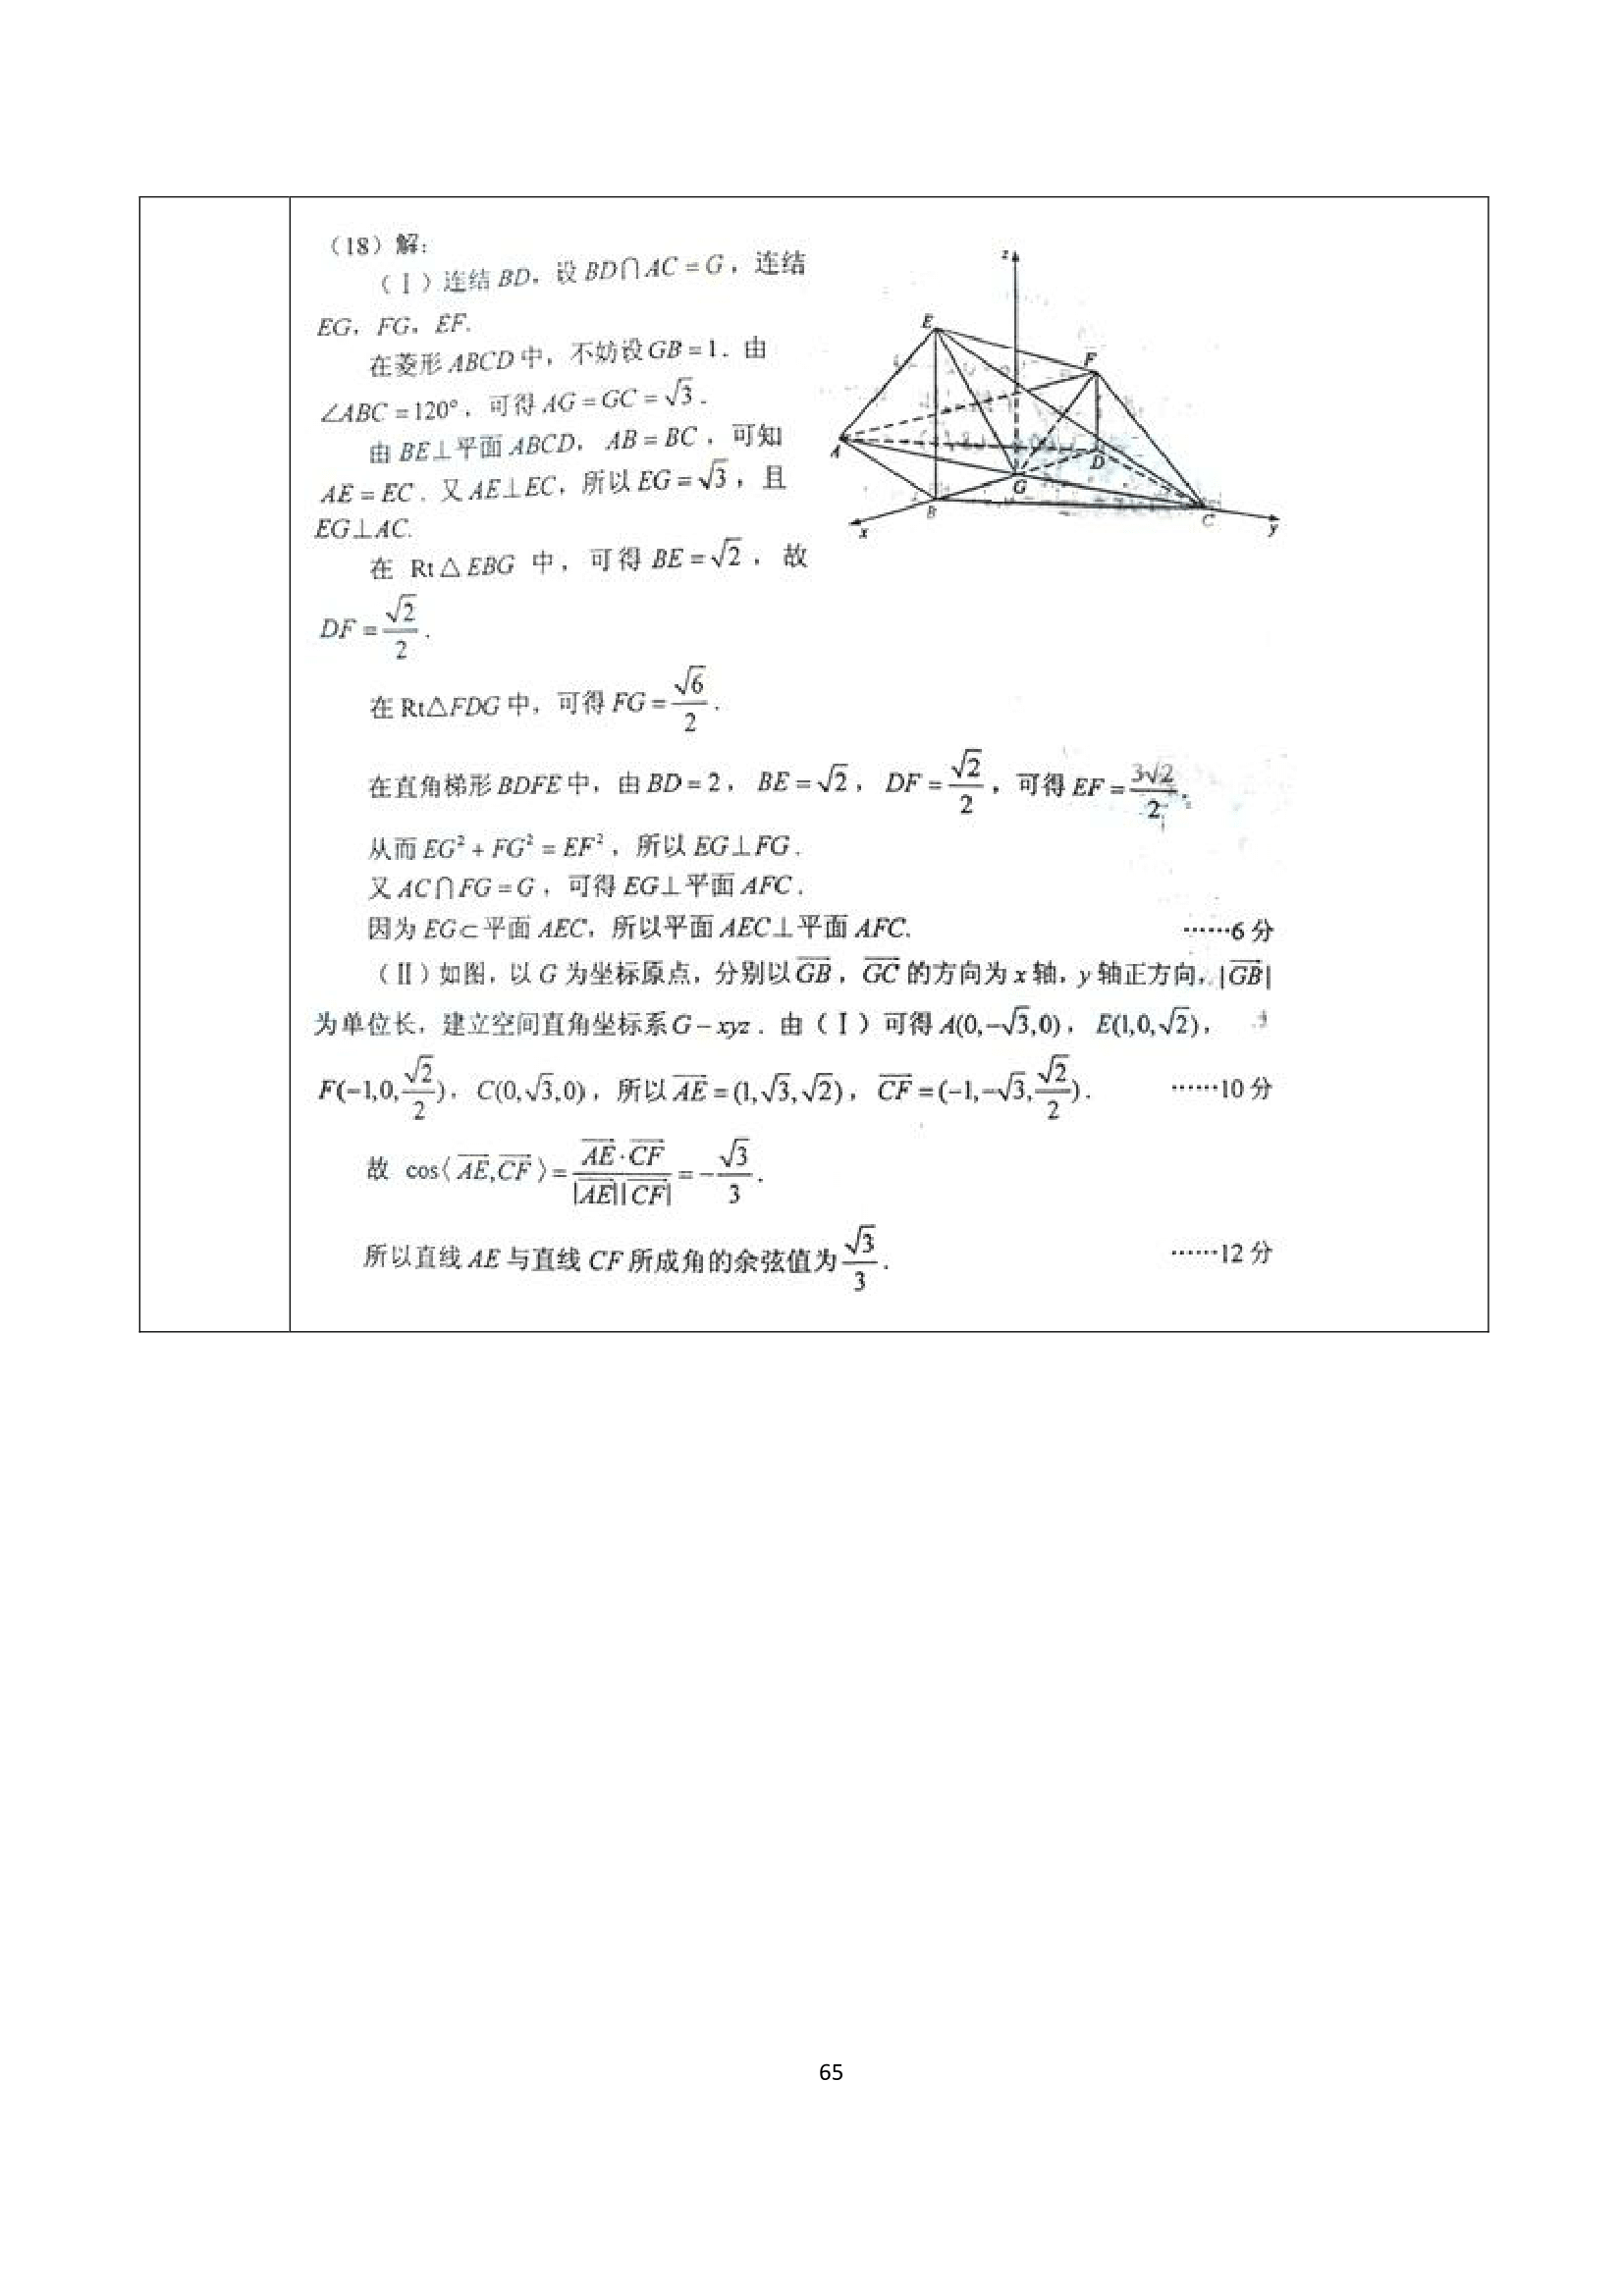 (18)解:
(Ⅰ)连结 BD,设 BD∩AC=G,连结
EG,FG,EF.
在菱形 ABCD 中,不妨设 GB=1.由
∠ABC=120°,可得 AG=GC=√3.
由 BE⊥平面 ABCD,AB=BC,可知
AE=EC.又 AE⊥EC,所以 EG=√3,且
EG⊥AC.
在 Rt△EBG 中,可得 BE=√2,故
DF=√2/2.
在 Rt△FDG 中,可得 FG=√6/2.
在直角梯形 BDFE 中,由 BD=2,BE=√2,DF=√2/2,可得 EF=3√2/2.
从而 EG²+FG²=EF²,所以 EG⊥FG.
又 AC∩FG=G,可得 EG⊥平面 AFC.
因为 EG⊂平面 AEC,所以平面 AEC⊥平面 AFC. ……6 分
(Ⅱ)如图,以 G 为坐标原点,分别以 GB,GC 的方向为 x 轴,y 轴正方向,|GB|
为单位长,建立空间直角坐标系 G-xyz.由(Ⅰ)可得 A(0,-√3,0),E(1,0,√2),
F(-1,0,√2/2),C(0,√3,0),所以 AE=(1,√3,√2),CF=(-1,-√3,√2/2). ……10 分
故 cos〈AE,CF〉=AE·CF/|AE||CF|=-√3/3.
所以直线 AE 与直线 CF 所成角的余弦值为 √3/3. ……12 分
z
E
F
A
D
G
B
C
x
y
65